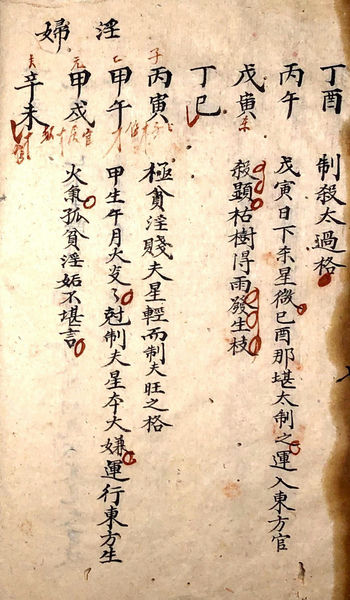 丁酉 制殺太過格
丙午 戊寅日下杀星微巳酉那堪太制之運入東方官
戊寅 殺顯枯樹得雨發生枝
丁巳
丙寅 極貧淫賤夫星輕而制夫旺之格
甲午 甲生午月火炎々尅制夫星夲大嫌運行東方生
甲戌 火氣孤貧淫妬不堪言
辛未
淫婦